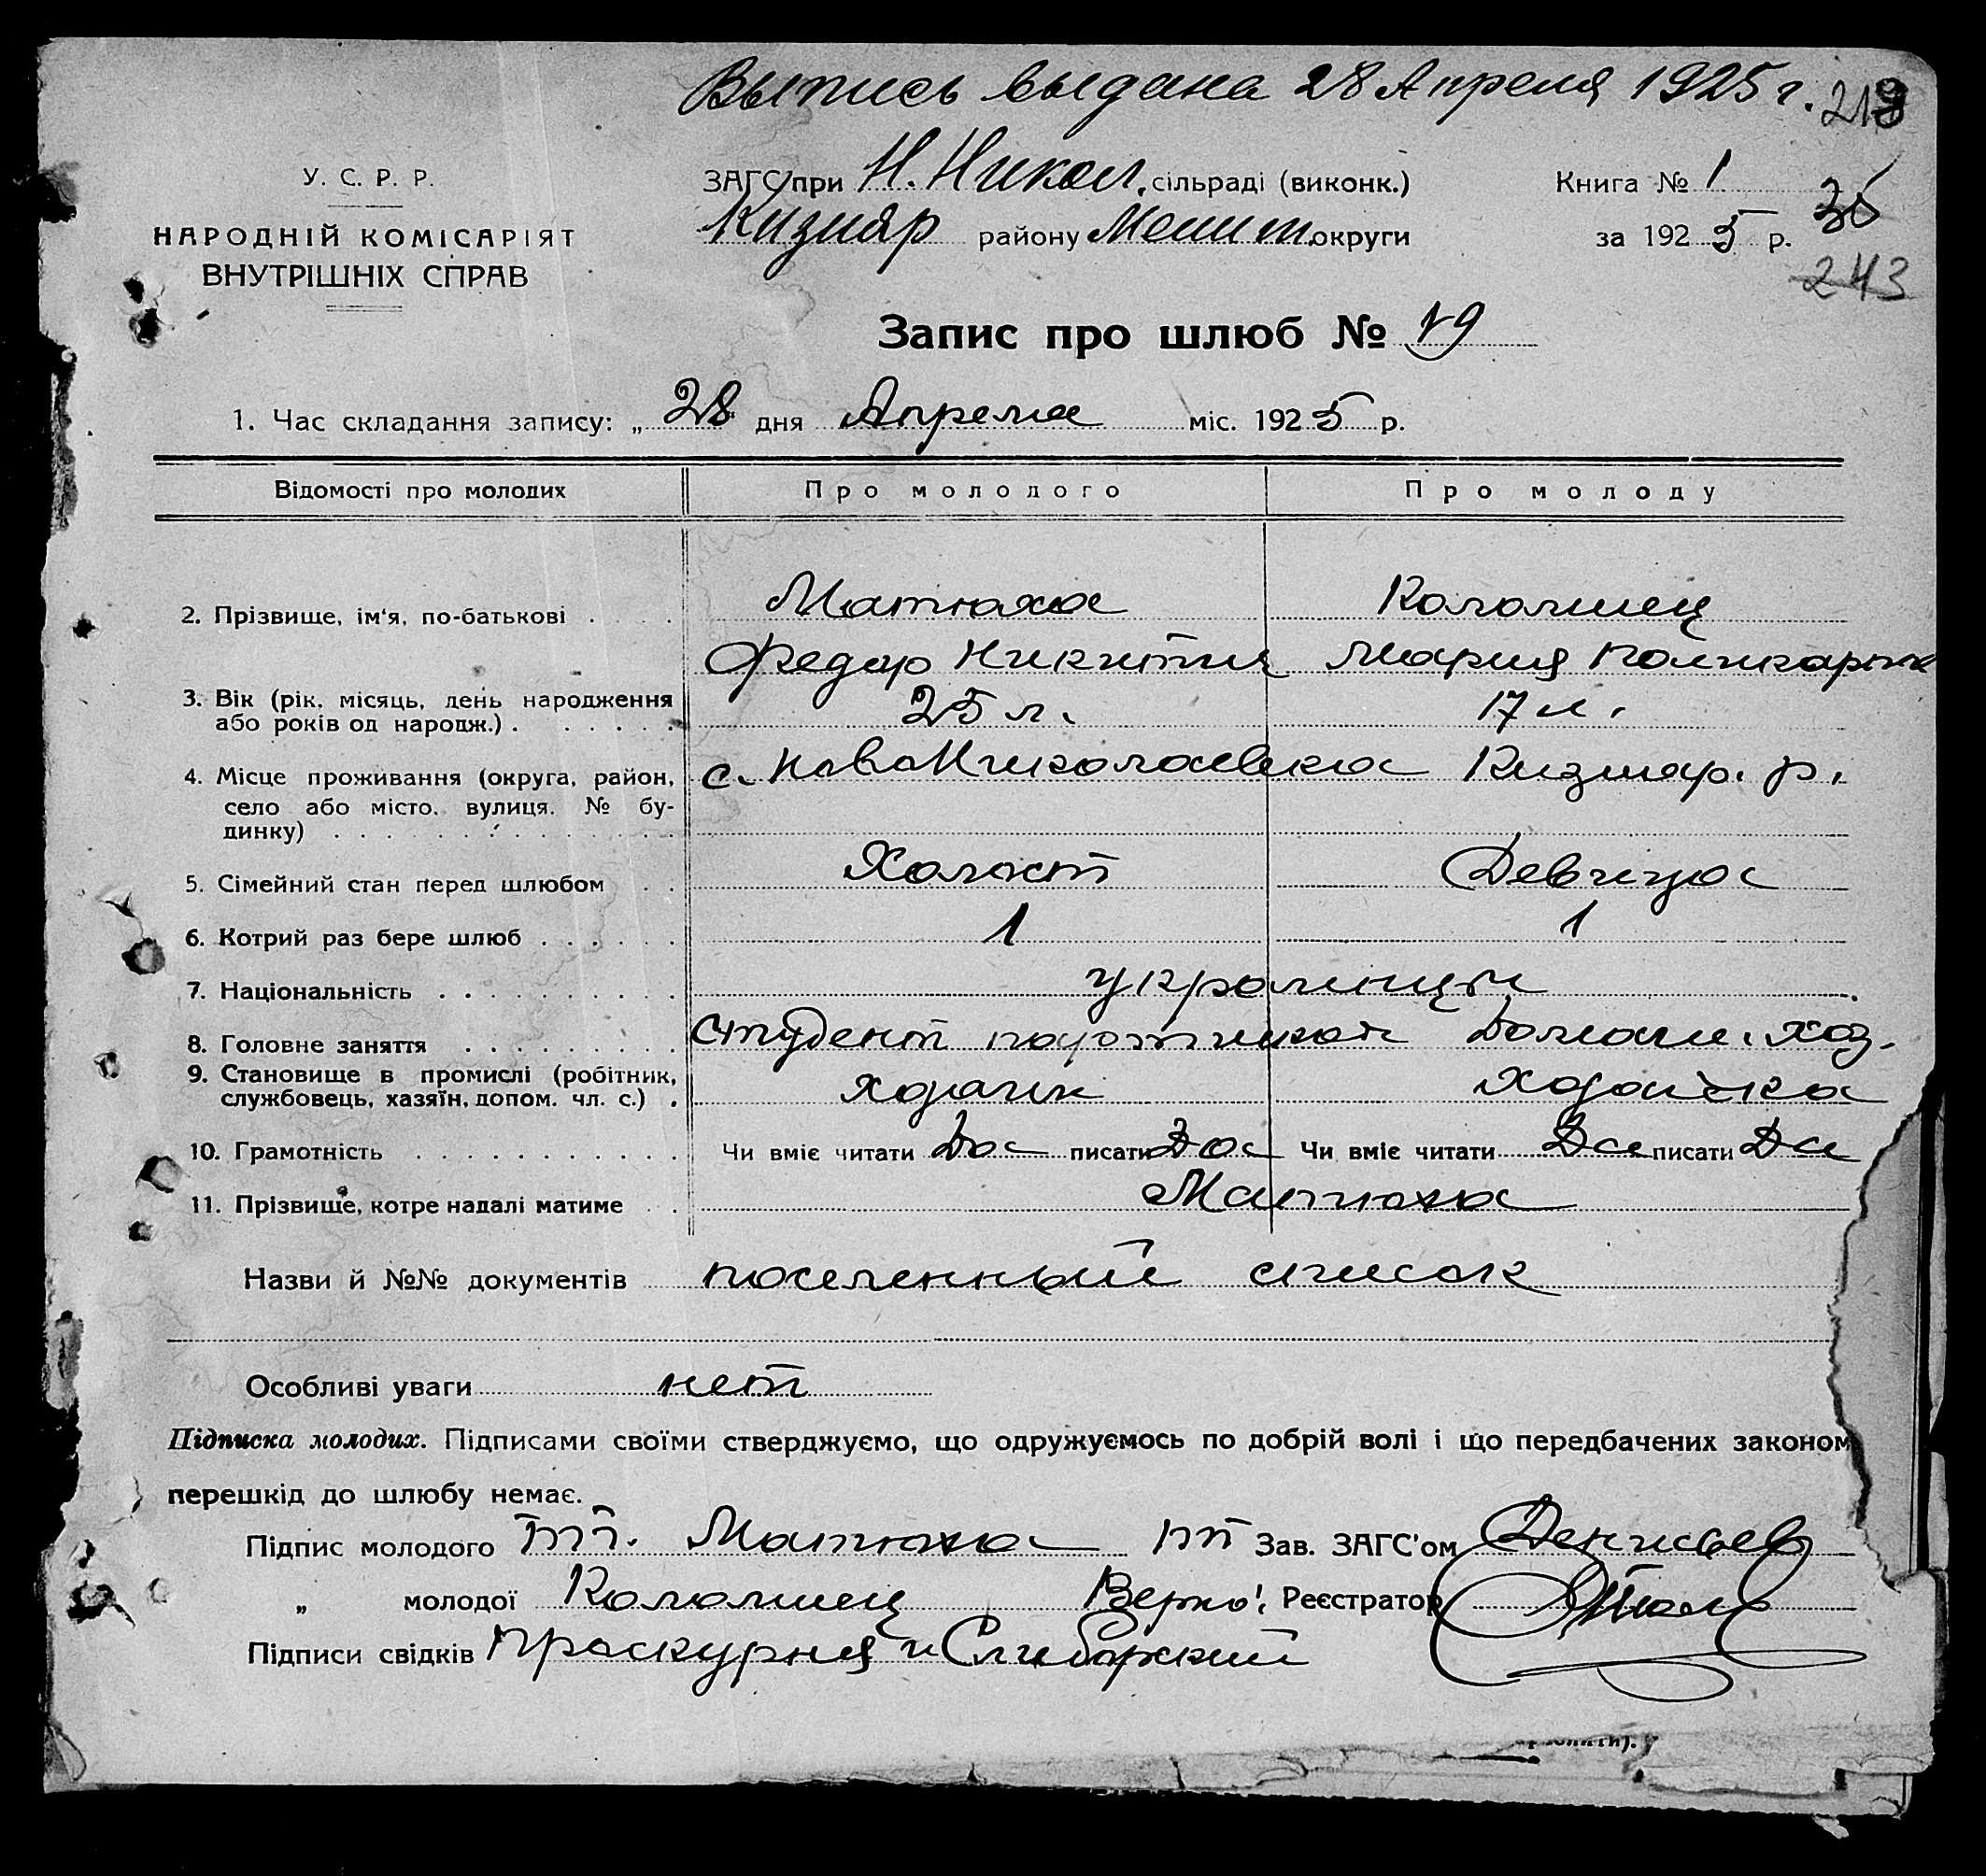 Выпись выдана 28 Апреля 1925 г.
У. С. Р. Р.
НАРОДНІЙ КОМІСАРІЯТ
ВНУТРІШНІХ СПРАВ
ЗАГС при Н. Никол. сільраді (виконк.)
Кизияр району Мелит. округи
Книга № 1
за 1925 р.
35
243
Запис про шлюб № 19
1. Час складання запису: „ 28 дня Апреля міс. 1925 р.
Відомості про молодих Про молодого Про молоду
2. Прізвище, ім‘я, по-батькові . . . . Матюха Коломиец
Федор Никитич Мария Поликарп
3. Вік (рік, місяць, день народження
або років од народж.) . . . . . . 25 л. 17 л.
4. Місце проживання (округа, район, с. НовоНиколаевка Кизияр. р.
село або місто, вулиця, № бу-
динку) . . . . . . . . . . . .
5. Сімейний стан перед шлюбом . . Холост Девица
6. Котрий раз бере шлюб . . . . . . 1 1
7. Національність . . . . . . . . . . украинцы
8. Головне заняття . . . . . . . . . студент Домашн. хоз.
9. Становище в промислі (робітник,
службовець, хазяїн, допом. чл. с.) . хозяин хозяйка
10. Грамотність . . . . . . . . . . . Чи вміє читати Да писати Да Чи вміє читати Да писати Да
11. Прізвище, котре надалі матиме . . Матюха
Назви й №№ документів поселенный список
Особливі уваги нет
Підписка молодих. Підписами своїми стверджуємо, що одружуємось по добрій волі і що передбачених законом
перешкід до шлюбу немає.
Підпис молодого пп. Матюха пп Зав. ЗАГС'ом Денисьев
„ молодої Коломиец Верно: Реєстратор
Підписи свідків Проскурня и